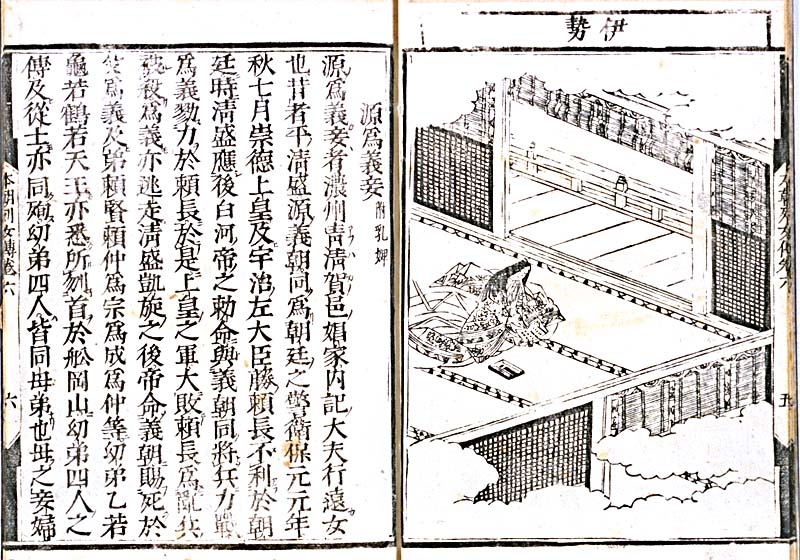 伊勢
本朝列女傳卷六
五
源爲義妾 附乳婢
源爲義妾者濃州靑淸賀邑娼家内記大夫行遠女
也昔者平淸盛源義朝同爲朝廷之警衛保元元年
秋七月崇德上皇及宇治左大臣藤頼長不利於朝
廷時淸盛應後白河帝之勅命與義朝同將兵力戰
爲義勠力於頼長於是上皇之軍大敗頼長爲亂兵
被殺爲義亦逃走淸盛凱旋之後帝命義朝賜死於
爲義及弟頼賢頼仲爲宗爲成爲仲等幼弟乙若
龜若鶴若天王亦悉所刎首於舩岡山幼弟四人之
傅及從士亦同殉幼弟四人皆同母弟也母之妾婦
本朝列女傳卷六
六